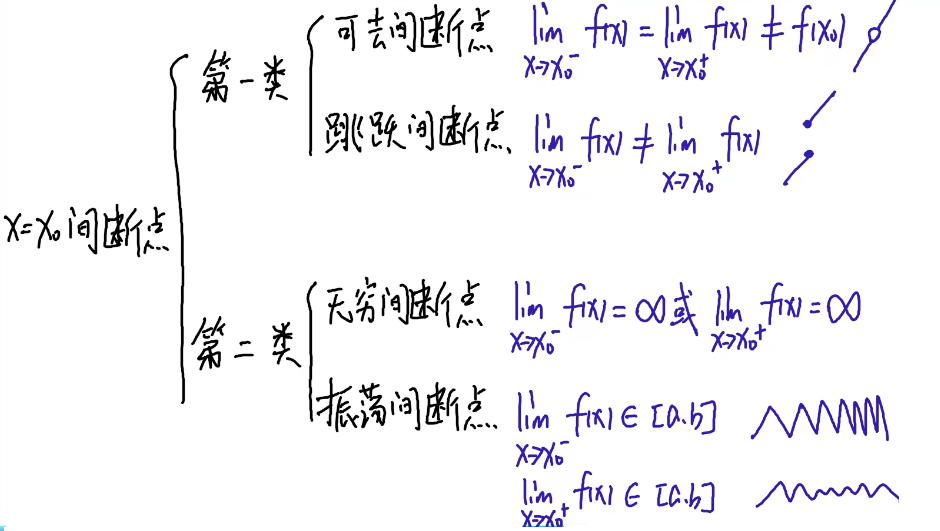 x=x₀间断点
第一类
可去间断点 lim x→x₀⁻ f(x) = lim x→x₀⁺ f(x) ≠ f(x₀)
跳跃间断点 lim x→x₀⁻ f(x) ≠ lim x→x₀⁺ f(x)
第二类
无穷间断点 lim x→x₀⁻ f(x) = ∞ 或 lim x→x₀⁺ f(x) = ∞
振荡间断点 lim x→x₀⁻ f(x) ∈ [a.b]
lim x→x₀⁺ f(x) ∈ [a.b]